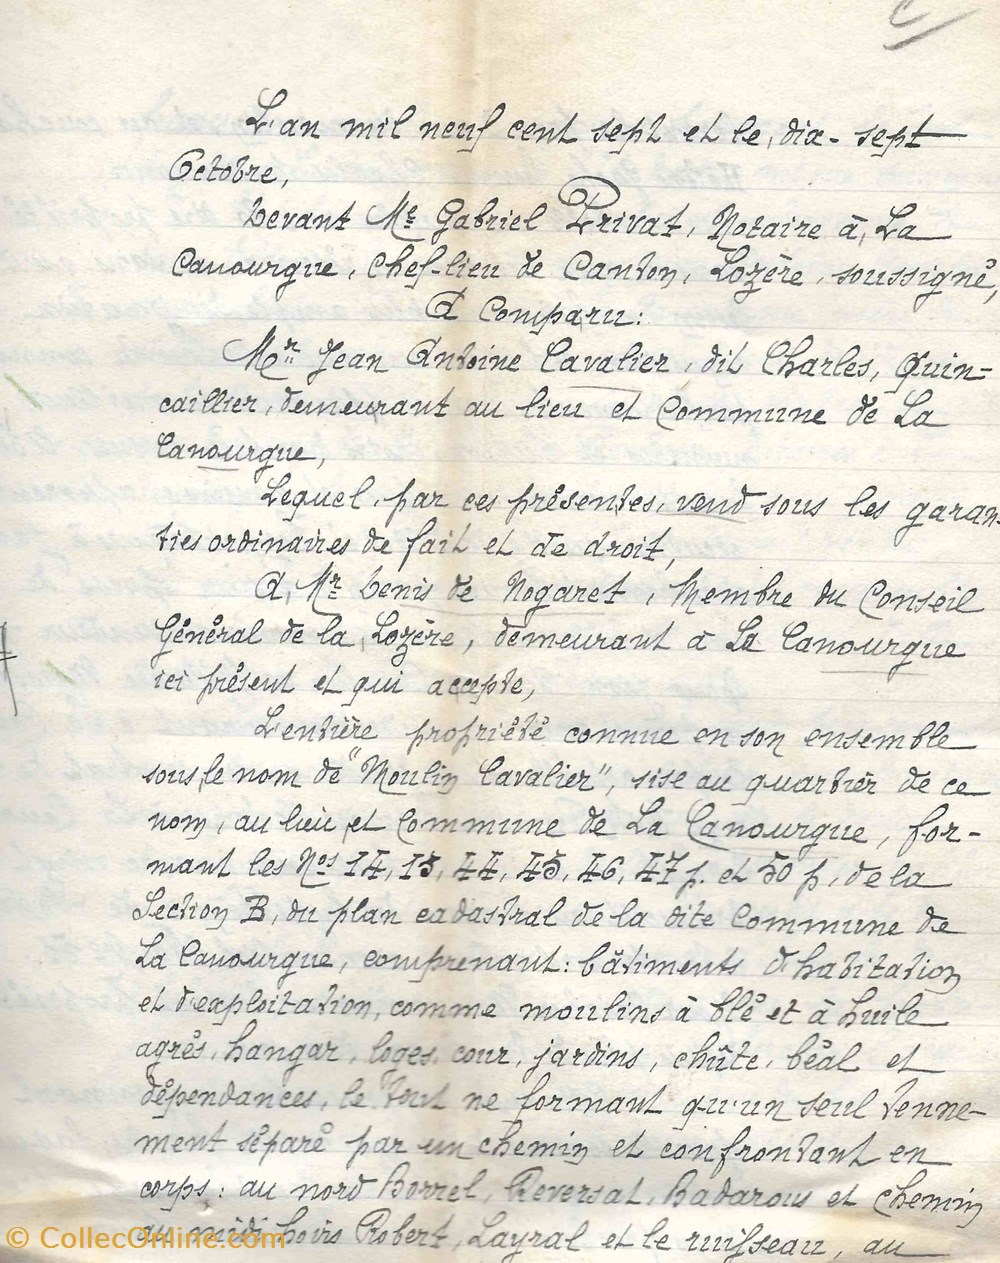 L'an mil neuf cent sept et le dix-sept
Octobre,
Devant Me Gabriel Privat, Notaire à La
Canourgue, chef-lieu de Canton, Lozère, soussigné,
A Comparu:
Mr Jean Antoine Cavalier, dit Charles, Quin-
caillier, demeurant au lieu et Commune de La
Canourgue,
Lequel, par ces présentes, vend sous les garan-
ties ordinaires de fait et de droit,
A, Mr Denis de Nogaret, Membre du Conseil
Général de la Lozère, demeurant à La Canourgue
ici présent et qui accepte,
L'entière propriété connue en son ensemble
sous le nom de "Moulin Cavalier", sise au quartier de ce
nom, au lieu et Commune de La Canourgue, for-
mant les Nos 14, 15, 44, 45, 46, 47 p. et 50 p, de la
Section B, du plan cadastral de la dite Commune de
La Canourgue, comprenant: bâtiments d'habitation
et d'exploitation, comme moulins à blé et à huile
agrès, hangar, loges, cour, jardins, chûte, béal et
dépendances, le tout ne formant qu'un seul tenne-
ment séparé par un chemin et confrontant en
corps: au nord Borrel, Reversat, Badarous et chemin
au midi hoirs Robert, Layral et le ruisseau, au
© CollecOnline.com